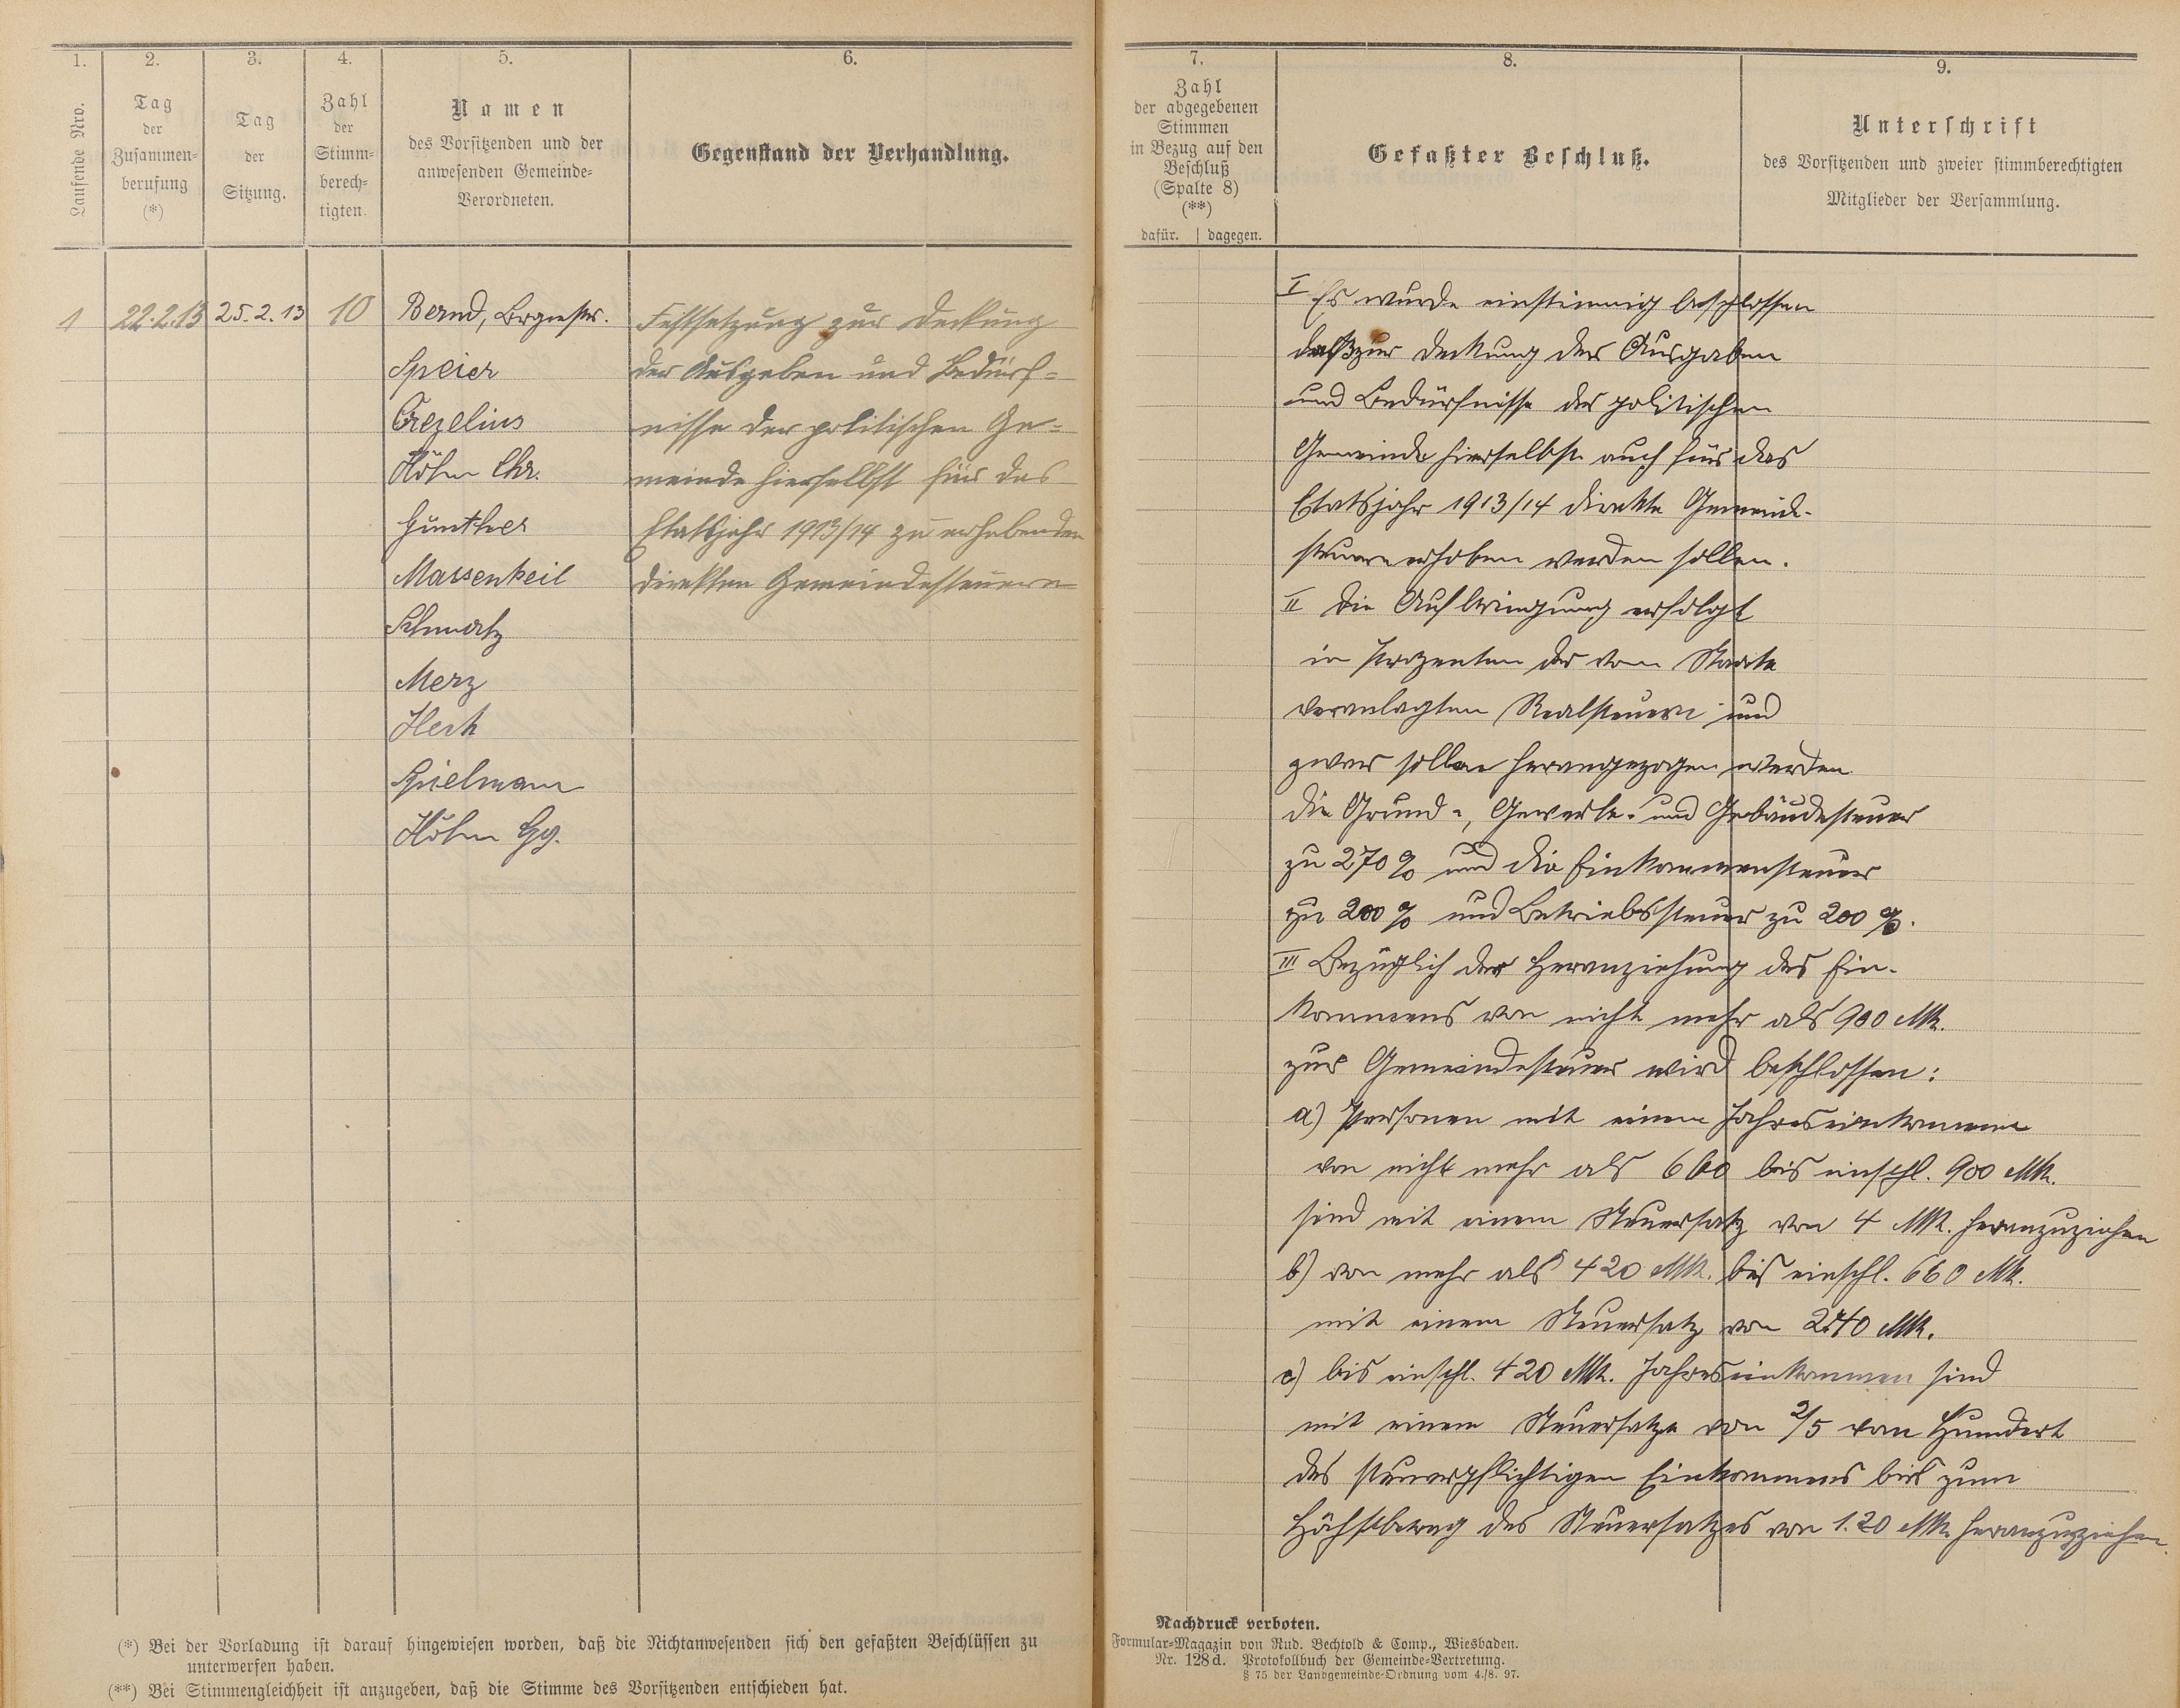 1.
Laufende Nro.
2.
Tag
der
Zusammen-
berufung
(*)
3.
Tag
der
Sitzung.
4.
Zahl
der
Stimm-
berech-
tigten.
5.
Namen
des Vorsitzenden und der
anwesenden Gemeinde-
Verordneten.
6.
Gegenstand der Verhandlung.
1
22.2.13
25.2.13
10
Bernd, Brgmstr.
Speier
Crezelius
Höhn Chr.
Günther
Massenkeil
Schmatz
Merz
Herh
Spielmann
Höhn Gg.
Festsetzung zur Deckung
der Ausgaben und Bedürf-
nisse der politischen Ge-
meinde hierselbst für das
Etatsjahr 1913/14 zu erhebenden
direkten Gemeindesteuern
(*) Bei der Vorladung ist darauf hingewiesen worden, daß die Nichtanwesenden sich den gefaßten Beschlüssen zu
unterwerfen haben.
(**) Bei Stimmengleichheit ist anzugeben, daß die Stimme des Vorsitzenden entschieden hat.
7.
Zahl
der abgegebenen
Stimmen
in Bezug auf den
Beschluß
(Spalte 8)
(**)
dafür. | dagegen.
8.
Gefaßter Beschluß.
9.
Unterschrift
des Vorsitzenden und zweier stimmberechtigten
Mitglieder der Versammlung.
I Es wurde einstimmig beschlossen
daß zur Deckung der Ausgaben
und Bedürfnisse der politischen
Gemeinde hierselbst auch für das
Etatsjahr 1913/14 direkte Gemeinde-
steuern erhoben werden sollen.
II Die Aufbringung erfolgt
in Prozenten der vom Staate
veranlagten Realsteuern und
zwar sollen herangezogen werden
die Grund-, Gewerbe- und Gebäudesteuer
zu 270 % und die Einkommensteuer
zu 200 % und Betriebssteuer zu 200 %.
III Bezüglich der Heranziehung des Ein-
kommens von nicht mehr als 900 Mk.
zur Gemeindesteuer wird beschlossen:
a) Personen mit einem Jahreseinkommen
von nicht mehr als 660 bis einschl. 900 Mk.
sind mit einem Steuersatz von 4 Mk. heranzuziehen
b) von mehr als 420 Mk. bis einschl. 660 Mk.
mit einem Steuersatz von 2.40 Mk.
c) bis einschl. 420 Mk. Jahreseinkommen sind
mit einem Steuersatze von 2/5 vom Hundert
des steuerpflichtigen Einkommens bis zum
Höchstbetrag des Steuersatzes von 1.20 Mk. heranzuziehen.
Nachdruck verboten.
Formular-Magazin von Rud. Bechtold & Comp., Wiesbaden.
Nr. 128d. Protokollbuch der Gemeinde-Vertretung.
§ 75 der Landgemeinde-Ordnung vom 4./8. 97.